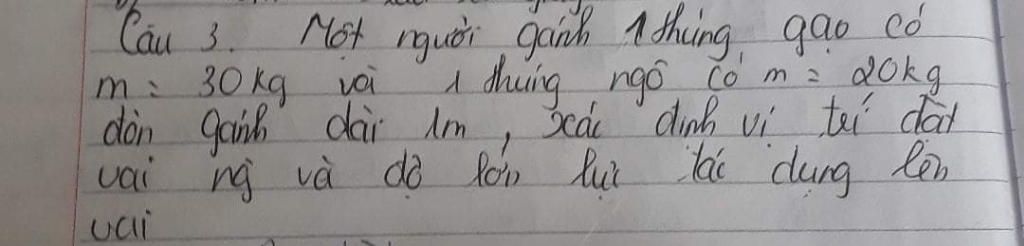 Câu 3. Một người gánh 1 thúng gạo có
m = 30kg và 1 thúng ngô có m = 20kg
đòn gánh dài 1m, xác định vị trí đặt
vai ng và độ lớn lực tác dụng lên
vai